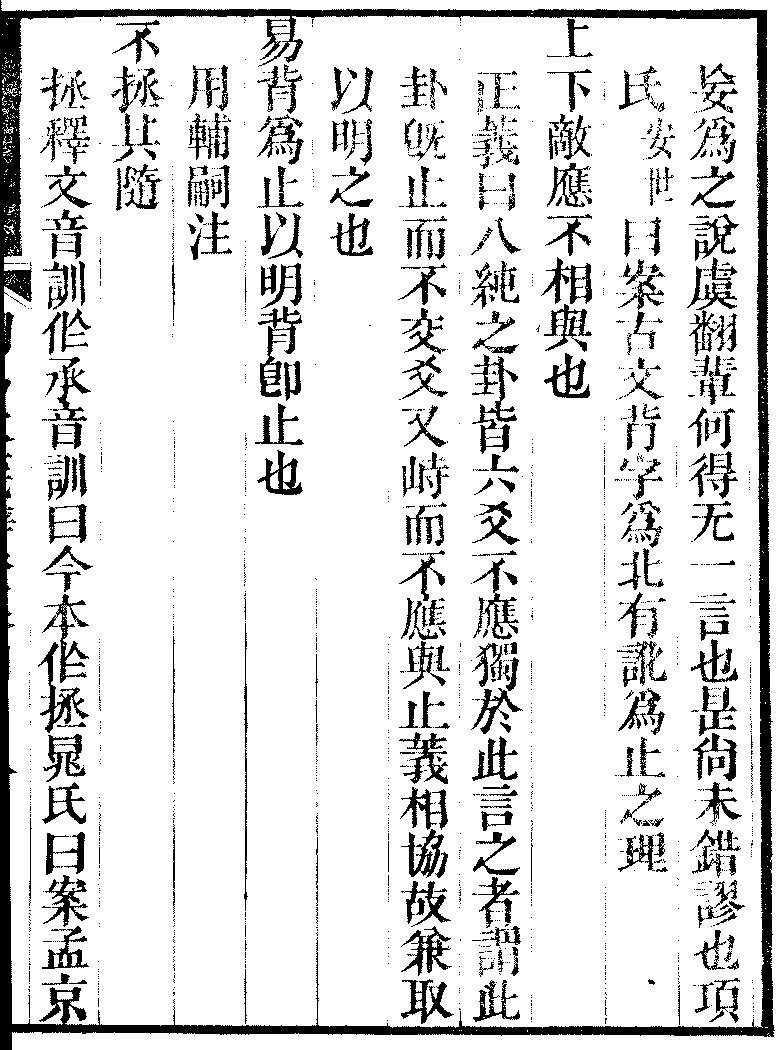 妄爲之說虞翻輩何得无一言也是尚未錯謬也項
氏安世曰案古文背字爲北有訛爲止之理
上下敵應不相與也
正義曰八純之卦皆六爻不應獨於此言之者謂此
卦旣止而不交爻又峙而不應與止義相協故兼取
以明之也
易背爲止以明背卽止也
用輔嗣注
不拯其隨
拯釋文音訓作承音訓曰今本作拯晁氏曰案孟京